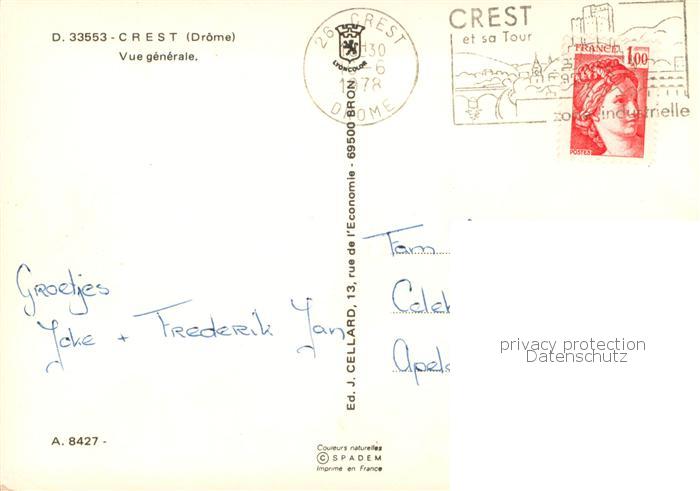 D. 33553 - CREST (Drôme)
Vue générale.
26 CREST
30
6
1978
DROME
LYONCOLOR
CREST
et sa Tour
zone industrielle
FRANCE 1,00
POSTES
Ed. J. CELLARD, 13, rue de l'Economie - 69500 BRON
Fam
Groetjes
Joke + Frederik Jan
A. 8427 -
Couleurs naturelles
© SPADEM
Imprimé en France
privacy protection
Datenschutz